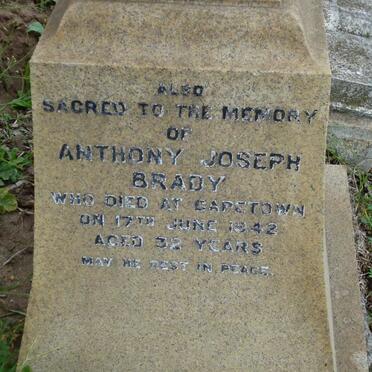 ALSO
SACRED TO THE MEMORY
OF
ANTHONY JOSEPH
BRADY
WHO DIED AT CAPETOWN
ON 17TH JUNE 1942
AGED 32 YEARS
MAY HE REST IN PEACE.